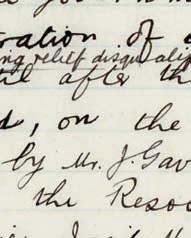 ration of
ing relief disqualif
til after th
d, on the
by Mr. J. Gav
the Resou